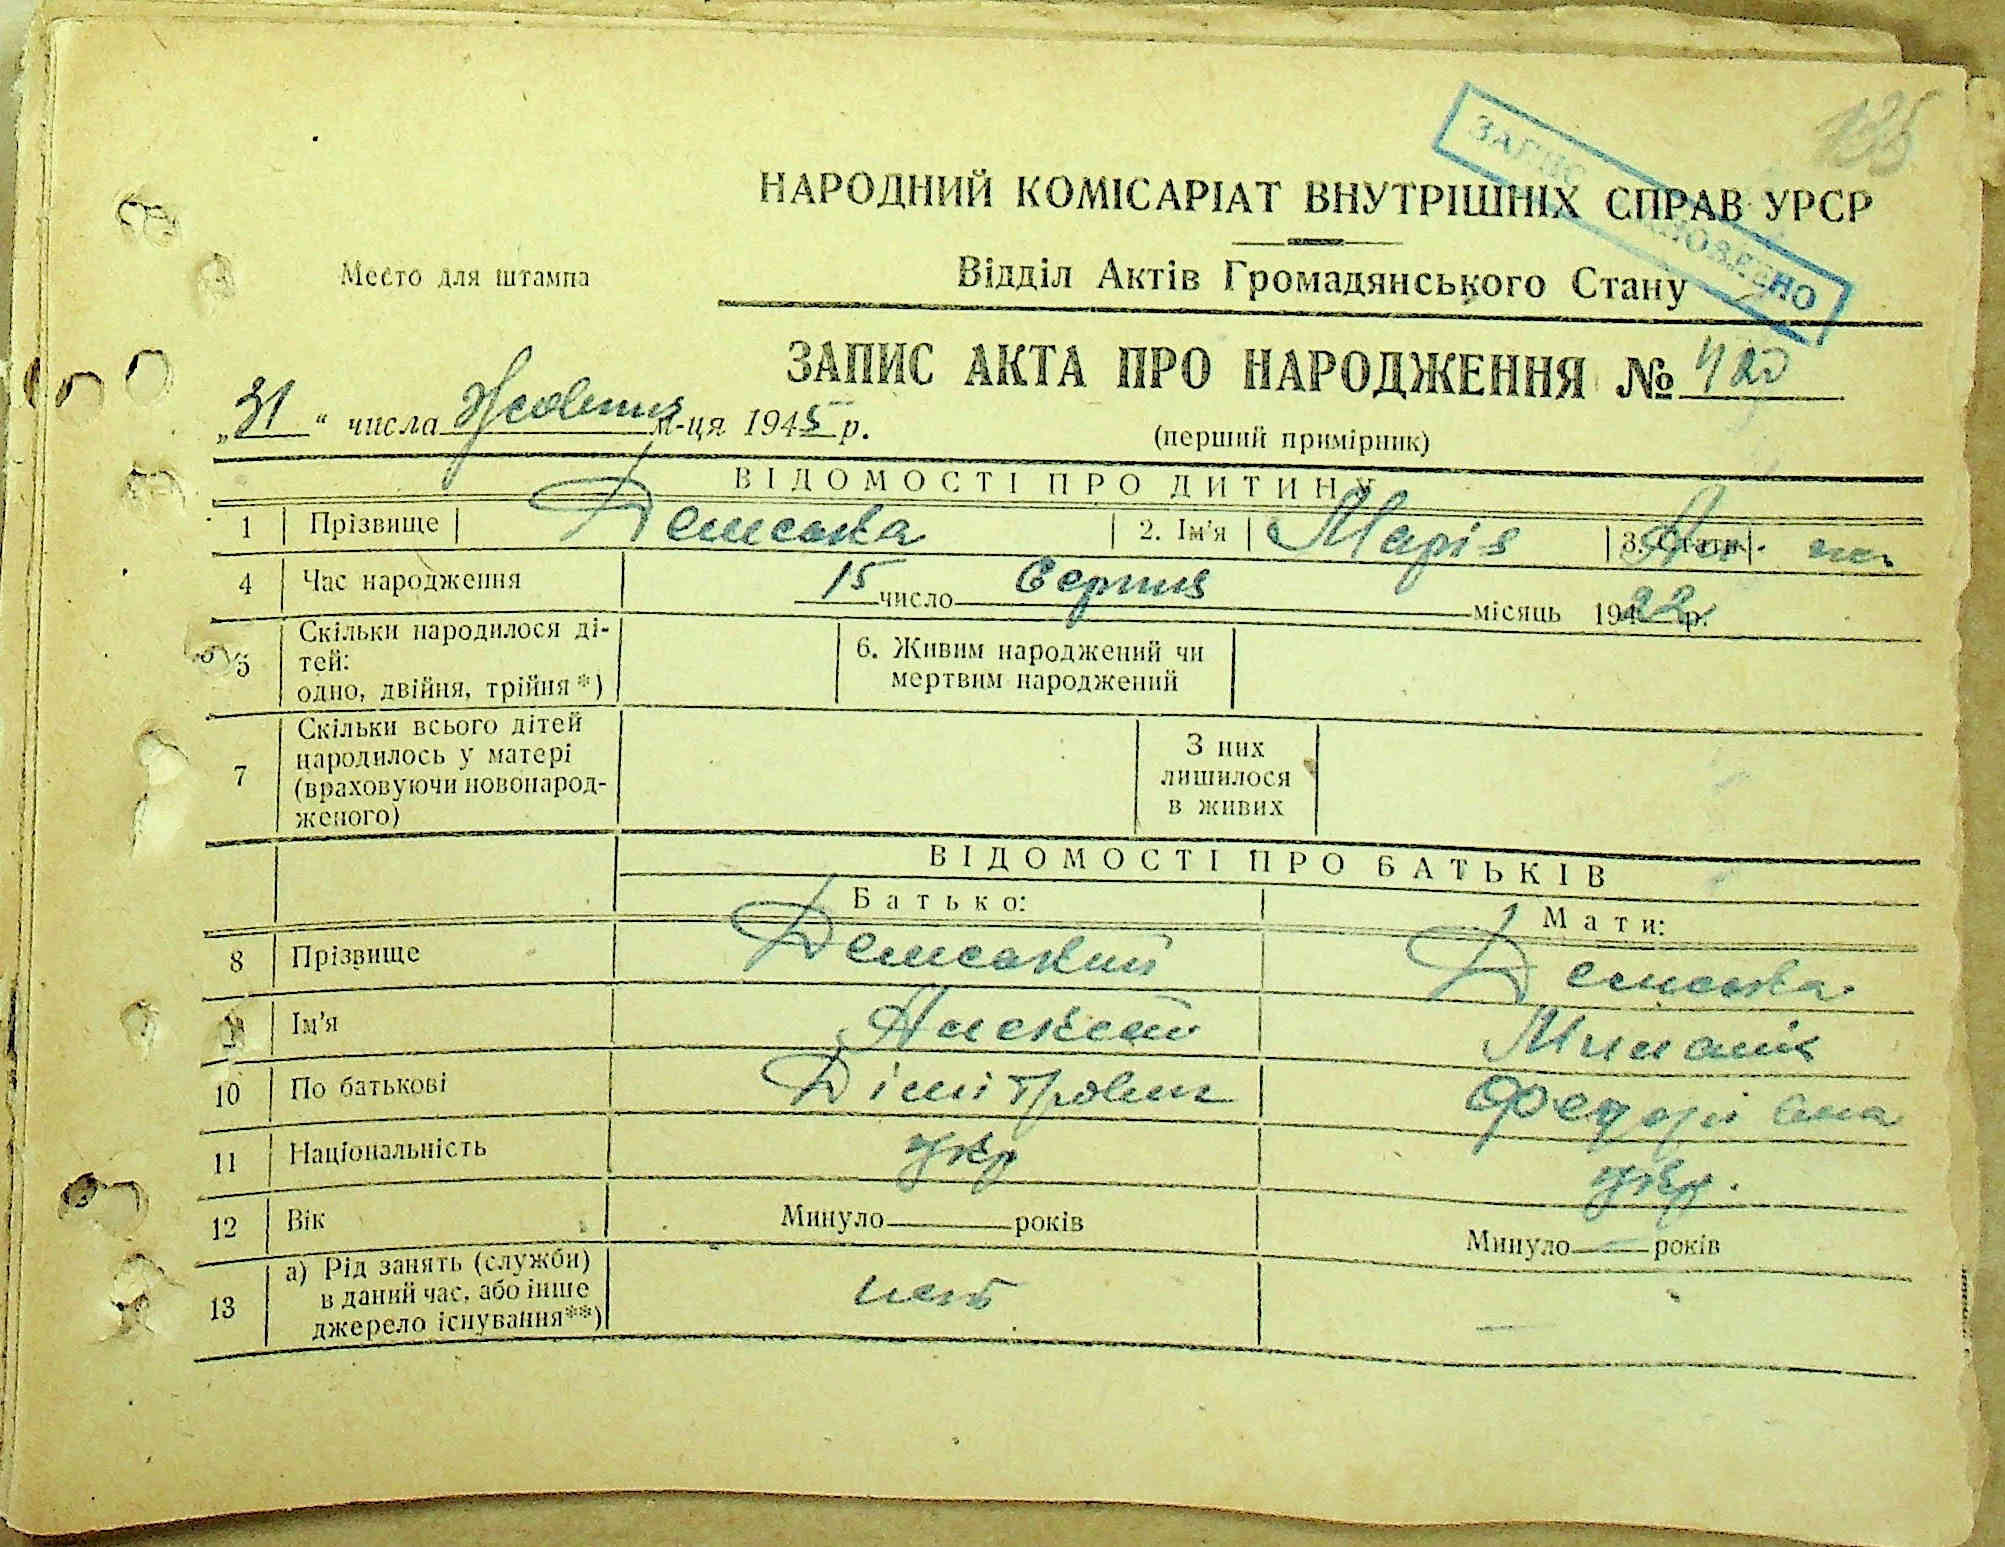 135
ЗАПИС ПОНОВЛЕНО
НАРОДНИЙ КОМІСАРІАТ ВНУТРІШНІХ СПРАВ УРСР
Место для штампа
Відділ Актів Громадянського Стану
ЗАПИС АКТА ПРО НАРОДЖЕННЯ № 420
„31" числа Жовтня м-ця 1945 р.
(перший примірник)
ВІДОМОСТІ ПРО ДИТИНУ
1 Прізвище Демська 2. Ім'я Марія 3. Стать
4 Час народження 15 число Серпня місяць 1922 р.
5 Скільки народилося ді-
тей:
одно, двійня, трійня *)
6. Живим народжений чи
мертвим народжений
7 Скільки всього дітей
народилось у матері
(враховуючи новонарод-
женого)
З них
лишилося
в живих
ВІДОМОСТІ ПРО БАТЬКІВ
Батько: Мати:
8 Прізвище Демський Демська
9 Ім'я Алексей
10 По батькові Дімітрович
11 Національність укр укр.
12 Вік Минуло — років Минуло — років
13 а) Рід занять (служби)
в даний час, або інше
джерело існування**)
—